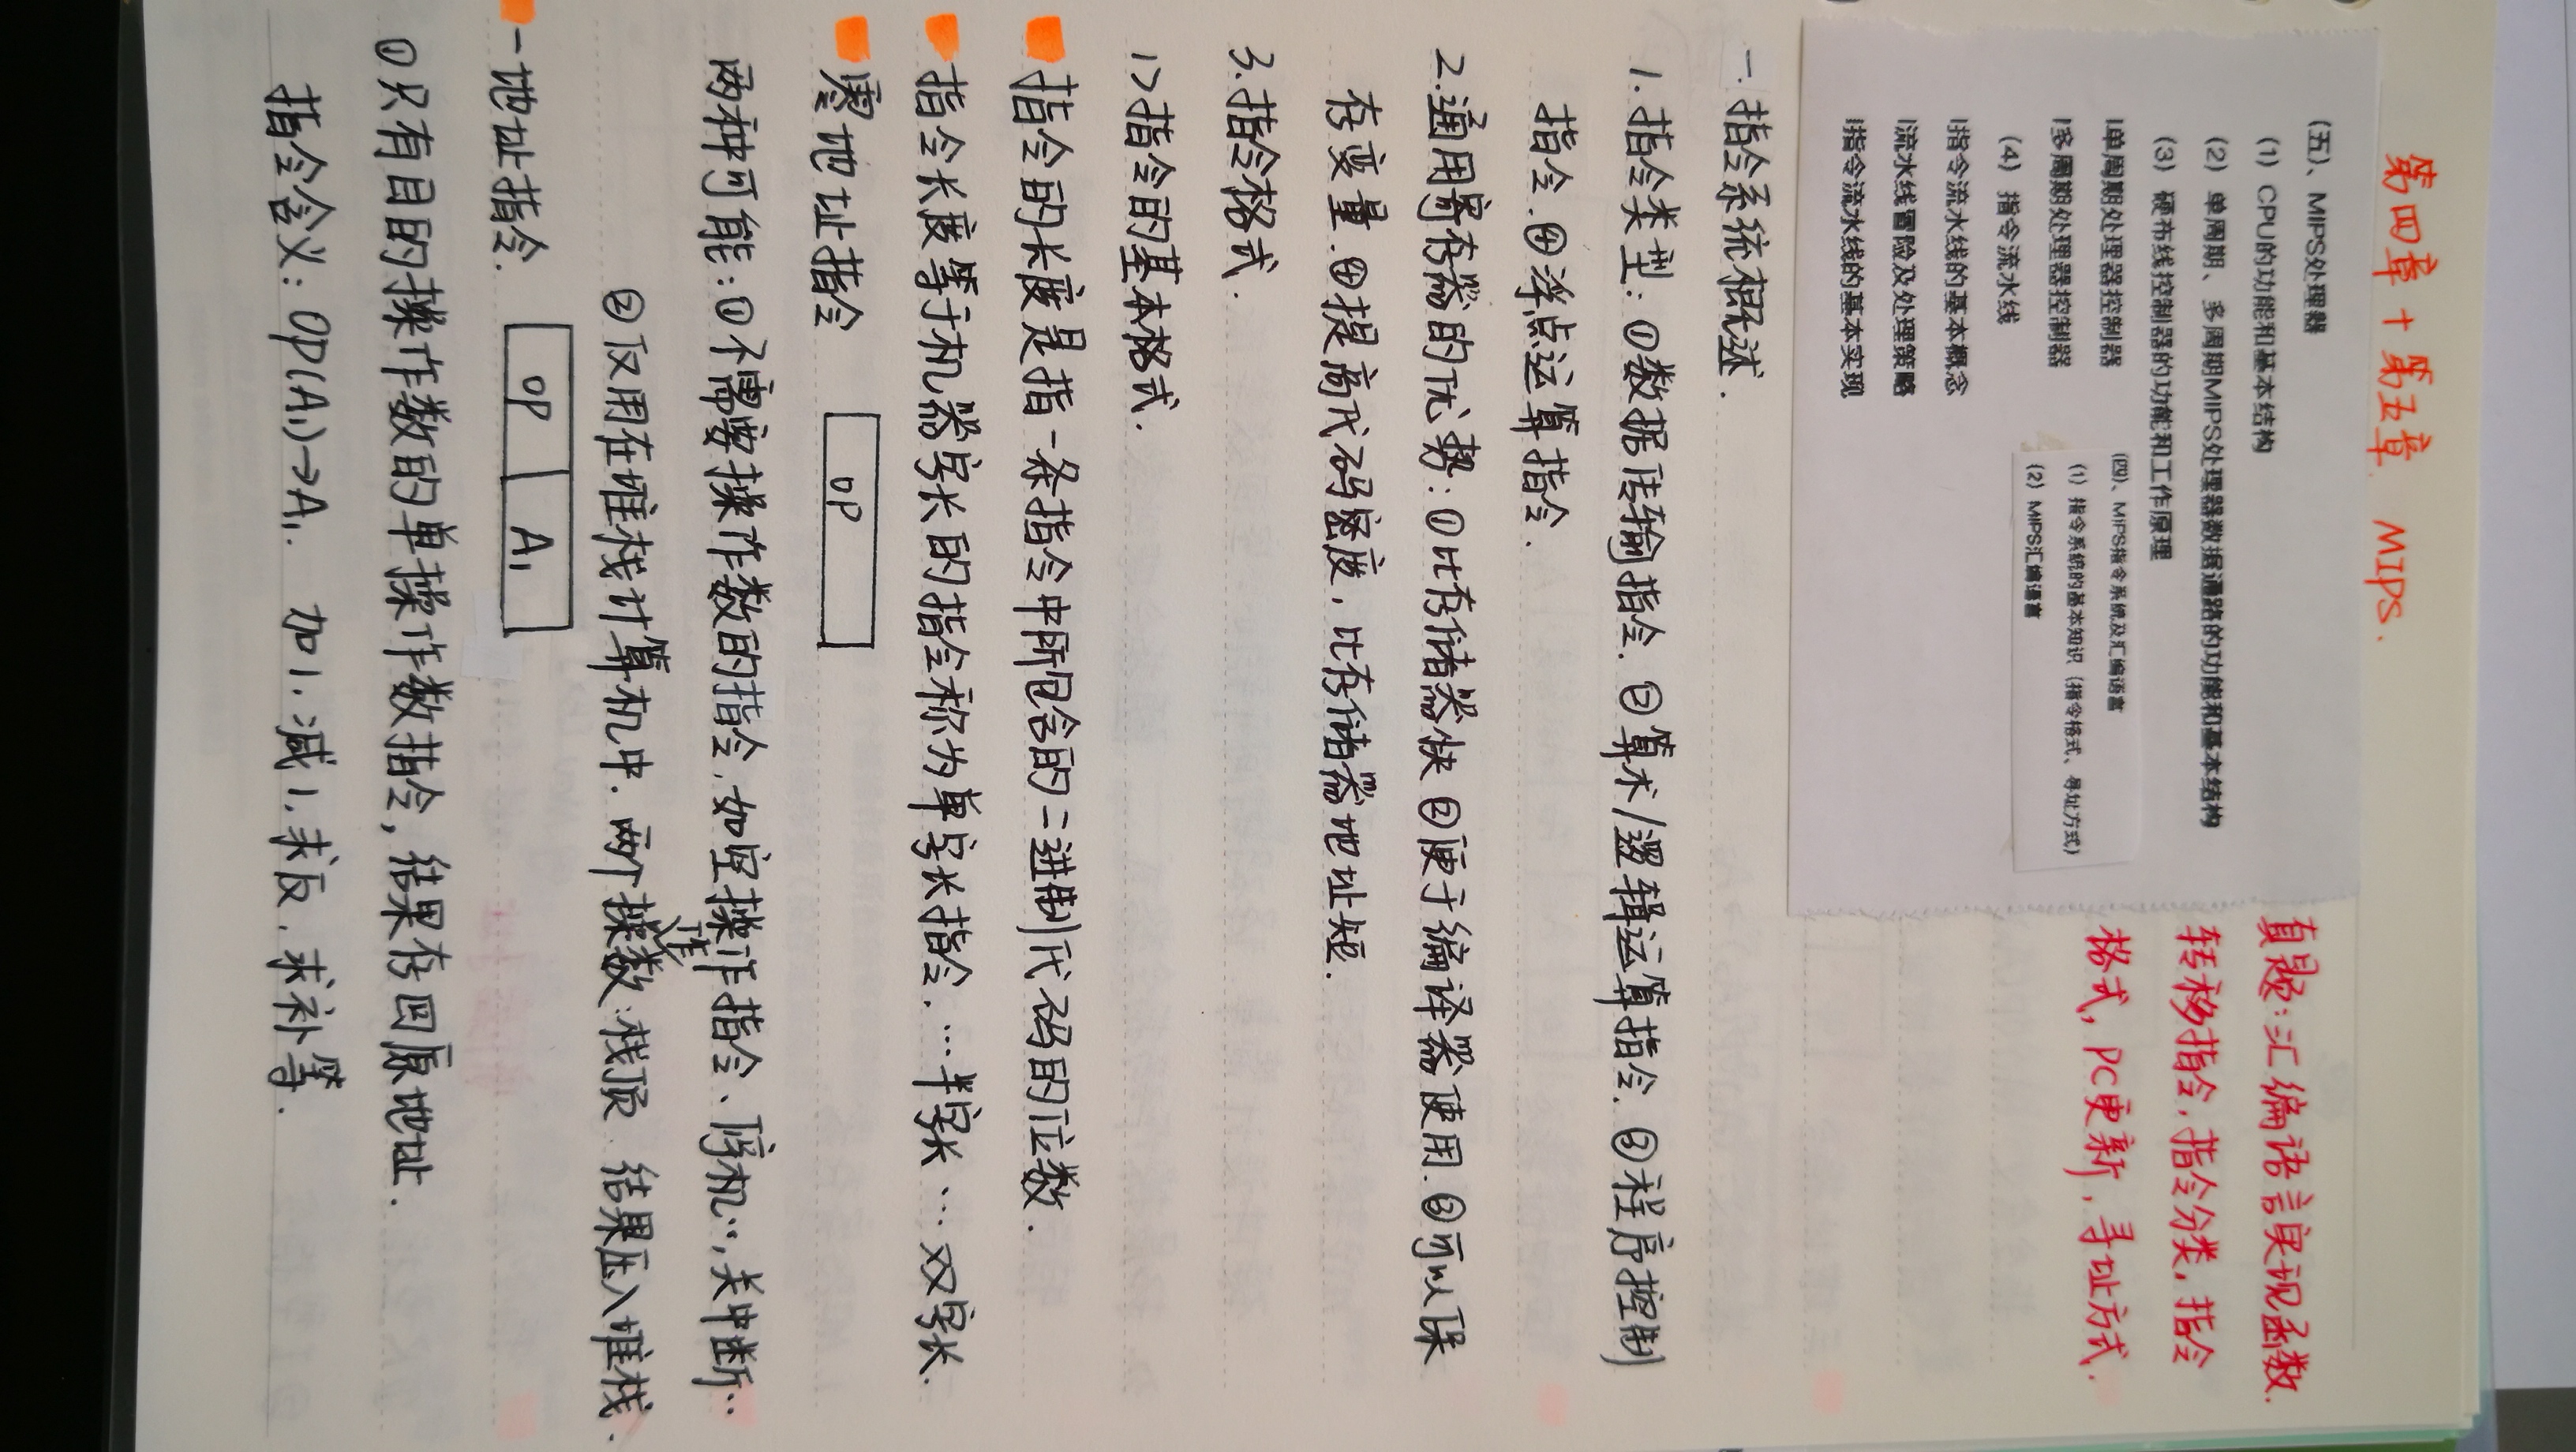 第四章 + 第五章 MIPS.
(五)、MIPS处理器
(1) CPU的功能和基本结构
(2) 单周期、多周期MIPS处理器数据通路的功能和基本结构
(3) 硬布线控制器的功能和工作原理
l单周期处理器控制器
l多周期处理器控制器
(4) 指令流水线
l指令流水线的基本概念
l流水线冒险及处理策略
l指令流水线的基本实现
(四)、MIPS指令系统及汇编语言
(1) 指令系统的基本知识（指令格式、寻址方式）
(2) MIPS汇编语言
真题:汇编语言实现函数.
转移指令,指令分类,指令
格式,PC更新,寻址方式.
一.指令系统概述.
1.指令类型:①数据传输指令.②算术/逻辑运算指令.③程序控制
指令.④浮点运算指令.
2.通用寄存器的优势:①比存储器快②便于编译器使用.③可以保
存变量.④提高代码密度,比存储器地址短.
3.指令格式.
1>指令的基本格式.
指令的长度是指一条指令中所包含的二进制代码的位数.
指令长度等于机器字长的指令称为单字长指令.…半字长…双字长.
零地址指令 OP
两种可能:①不需要操作数的指令,如空操作指令、停机..,关中断..
②仅用在堆栈计算机中.两个操作数:栈顶 结果压入堆栈.
一地址指令. OP A₁
①只有目的操作数的单操作数指令,结果存回原地址.
指令含义:OP(A₁)→A₁. 加1.减1,求反.求补等.